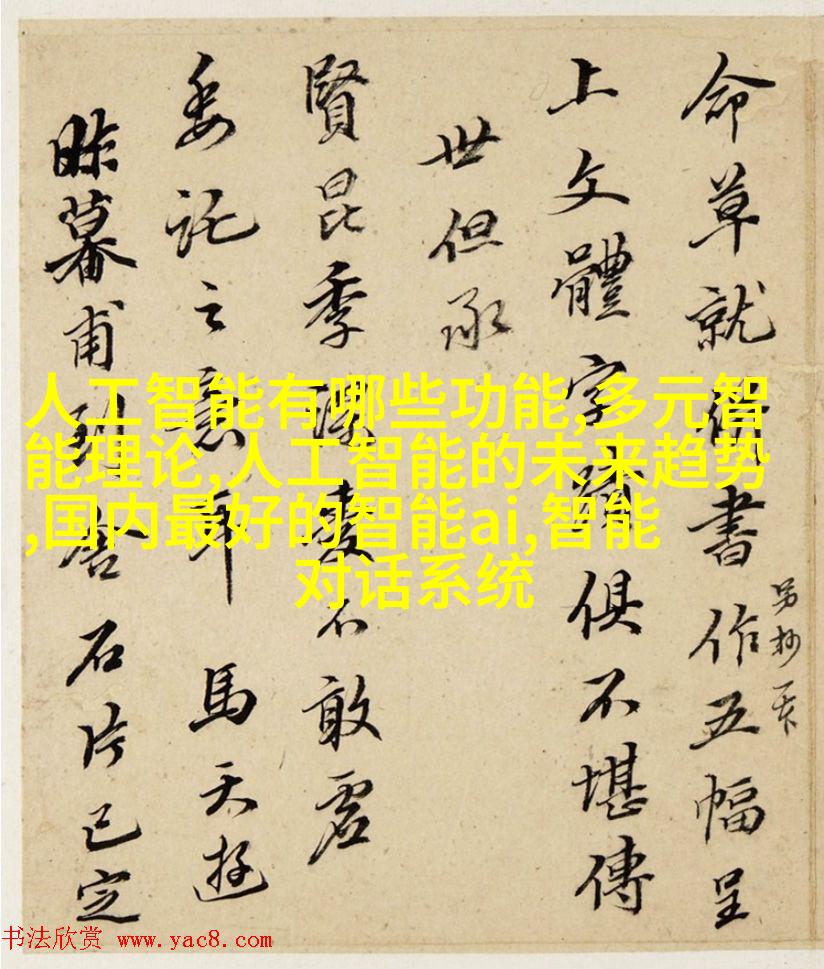 命草就書作五幅呈
另抄一
上文體字俱不堪傳
世但承
賢昆季不敢虛
委託之意耳 馬天游
昨暮甫到舍石片已定
人工智能有哪些功能,多元智
能理论,人工智能的未来趋势
,国内最好的智能ai,智能
对话系统
书法欣赏 www.yac8.com